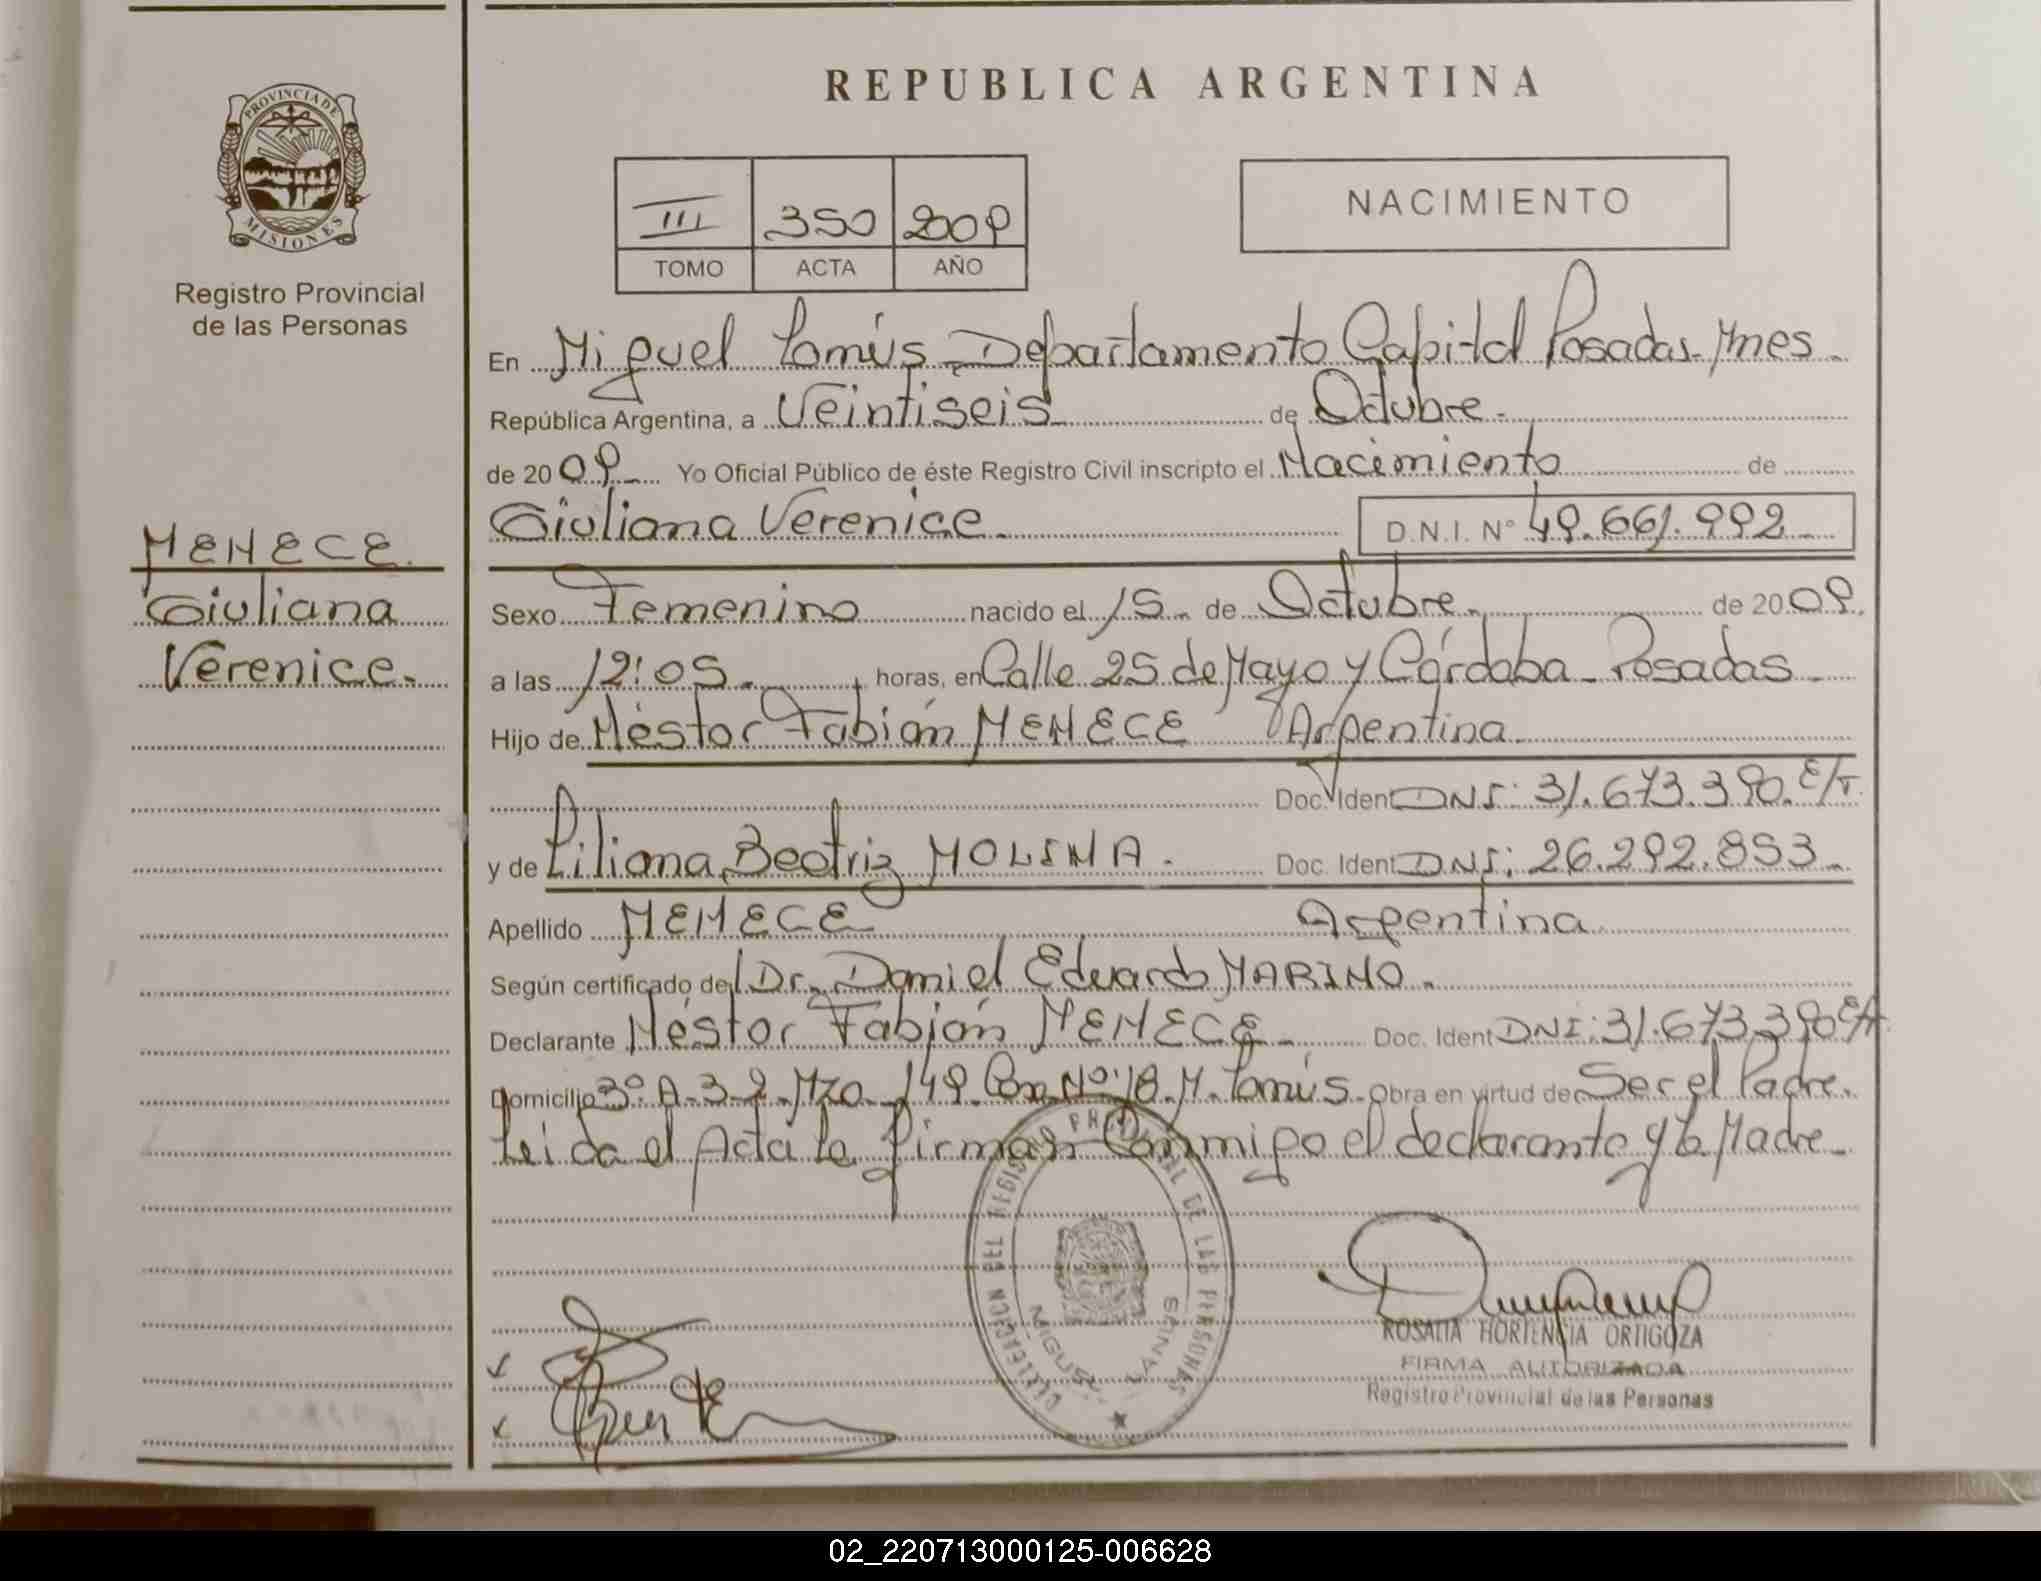 REPUBLICA ARGENTINA
PROVINCIA DE
MISIONES
Registro Provincial
de las Personas
III 350 2009
TOMO ACTA AÑO
NACIMIENTO
En Miguel Lanús Departamento Capital Posadas Mnes.
República Argentina, a Veintiseis de Octubre.
de 2009 Yo Oficial Público de éste Registro Civil inscripto el Nacimiento de
Giuliana Verenice. D.N.I. Nº 49.661.992
MENECE.
Giuliana
Verenice.
Sexo Femenino nacido el 15 de Octubre. de 2009.
a las 12:05 horas, en Calle 25 de Mayo y Córdoba - Posadas
Hijo de Néstor Fabián MENECE Argentina
Doc. Ident DNI: 31.673.390. E/T.
y de Liliana Beatriz MOLINA. Doc. Ident DNI: 26.292.853
Apellido MENECE Argentina
Según certificado del Dr. Daniel Eduardo MARINO.
Declarante Néstor Fabián MENECE Doc. Ident DNI: 31.673.390
Domicilio Mza. 149 Nº 18 M. Lanús. Obra en virtud de Ser el Padre.
Leida el Acta la firman Conmigo el declarante y la Madre
DELEGACION DEL REGISTRO PROVINCIAL DE LAS PERSONAS
MIGUEL LANUS
ROSALIA HORTENCIA ORTIGOZA
FIRMA AUTORIZADA
Registro Provincial de las Personas
02_220713000125-006628